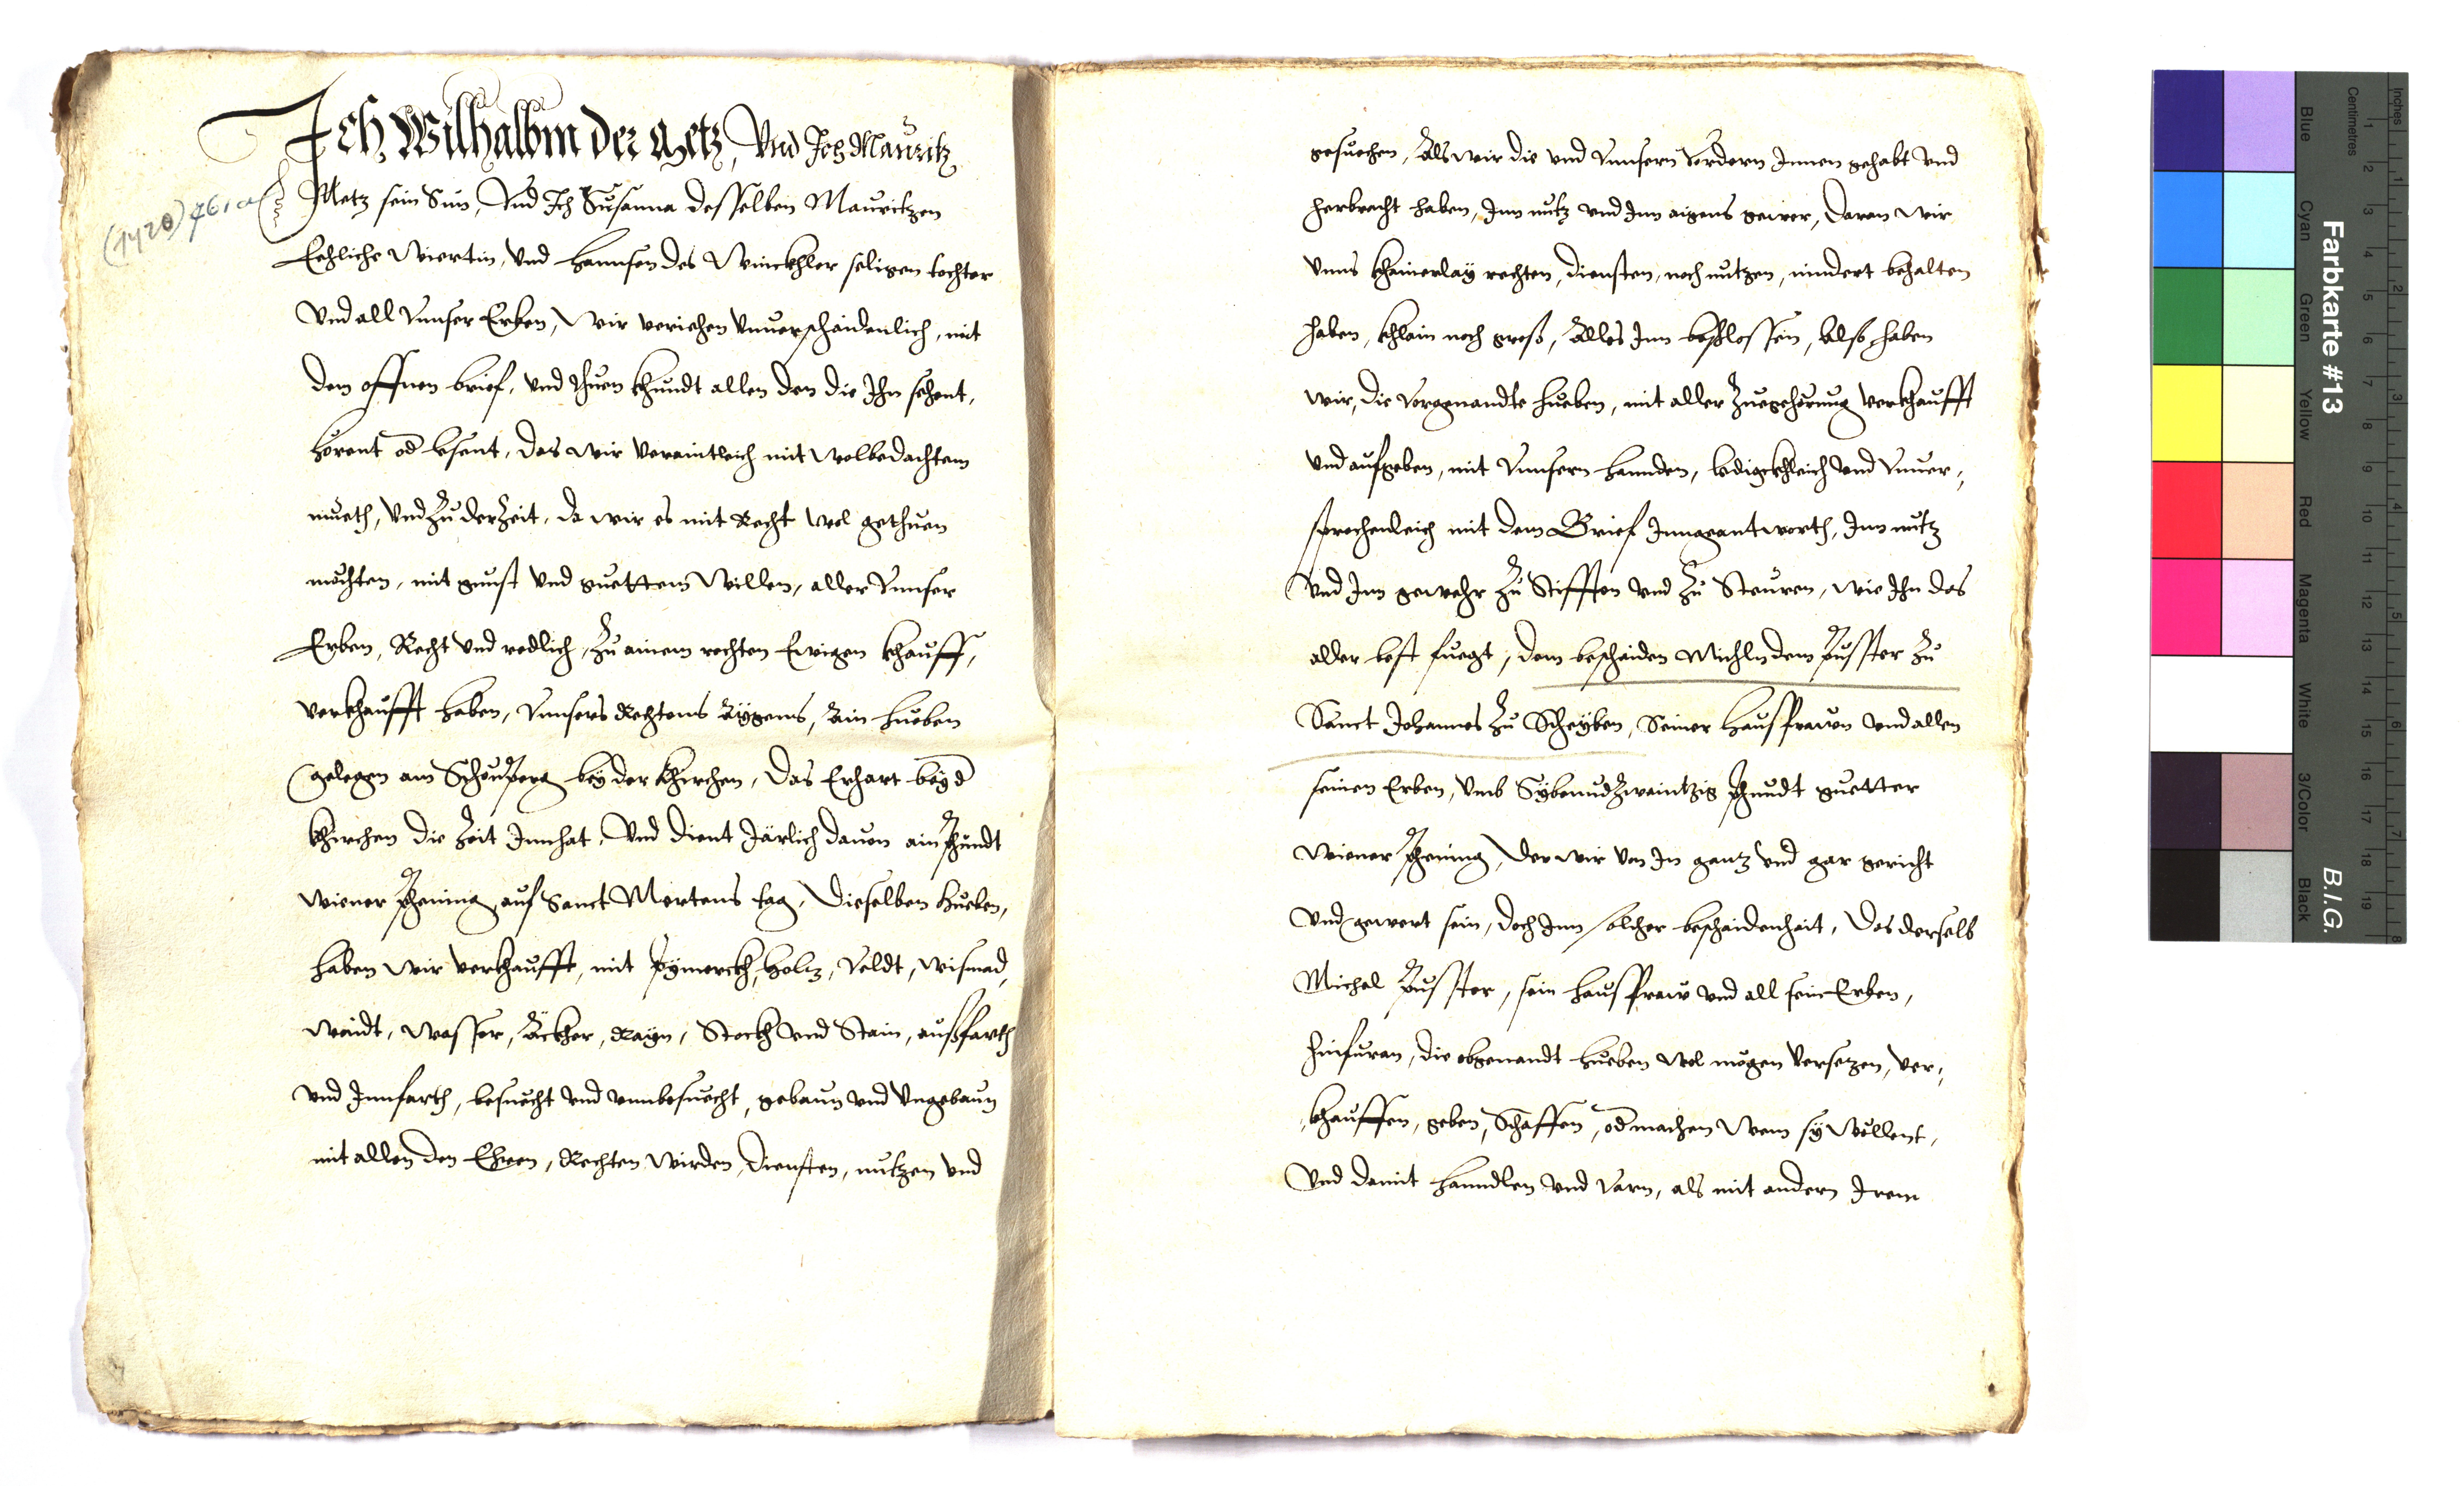 Ich Wilhalbm der Metz, Vnd Ich Mauritz
Metz sein Sun, Vnd Ich Susanna desselben Mauritzen
Eehliche Wiertin, Vnd Hannsen des Winckhler seligen tochter
Vnd all Vnnser Erben, Wir veriehen Vnuerschaidenlich, mit
dem offnen brief, Vnd thuen khundt allen den die Ihn sehent,
horent od lesent, das wir Veraintleich mit wolbedachtem
mueth, Vnd zu der Zeit, da wir es mit Recht wol gethuen
mochten, mit gunst Vnd guettem Willen, aller Vnnser
Erben, Recht Vnd redlich, zu ainem rechten Ewigen khauff,
verkhaufft haben, Vnnsers Rechtens Aÿgens, Ain hueben
gelegen am Schönperg beÿ der Khirchen, das Erhart beÿ d
Khirchen die Zeit Innhat, Vnd dient Järlich dauon ain Phundt
wiener Phening, auf Sanct Mertens tag, dieselben Hueben,
haben wir verkhaufft, mit Pÿmerckh, holtz, Veldt, wismad,
waidt, wasser, Äckher, Rayn, Stockh Vnd Stain, außfarth
Vnd Innfarth, besuecht Vnd vnnbesuecht, gebaun vnd Vngebaun
mit allen den Ehren, Rechten wirden, diensten, nutzen Vnd
gesuechen, Als wir die Vnd Vnnsern Vordern Innen gehabt Vnd
herbracht haben, Inn nutz vnd Inn aigens gewer, daran wir
Vnns khainerlaÿ rechten, diensten, noch nutzen, nindert behalten
haben, khlain noch groß, Alles Inn beschlossen, Also haben
wir, die Vorgenandte hueben, mit aller Zuegehörung Verkhaufft
Vnd aufgeben, mit Vnnsern hannden, ledigckhleich Vnd Vnuer,,
sprochenleich mit dem Brief Inngeantworth, Inn nutz
Vnd Inn gewehr zu Stifften vnd zu Steuren, wie Ihn das
aller best fuegt, dem beschaiden Michln dem Pusster zu
Sanct Johannes zu Scheÿben, Seiner Hausfrauen Vnd allen
seinen Erben, Vmb Sÿbenudzwaintzig Phundt guetter
wiener Phening, der wir Von In gantz Vnd gar gericht
Vnd gewert sein, doch Inn solcher beschaidenhait, das derselb
Michel Pusster, sein hausfraw Vnd all sein Erben,
hinfuran, die obgenandt hueben wol mögen Versetzen, ver,,
khauffen, geben, Schaffen, od machen wem sÿ wöllent,
Vnd damit hanndlen Vnd Varn, als mit andern Irem
Farbkarte #13
B.I.G.
Inches
Centimetres
Blue
Cyan
Green
Yellow
Red
Magenta
White
3/Color
Black